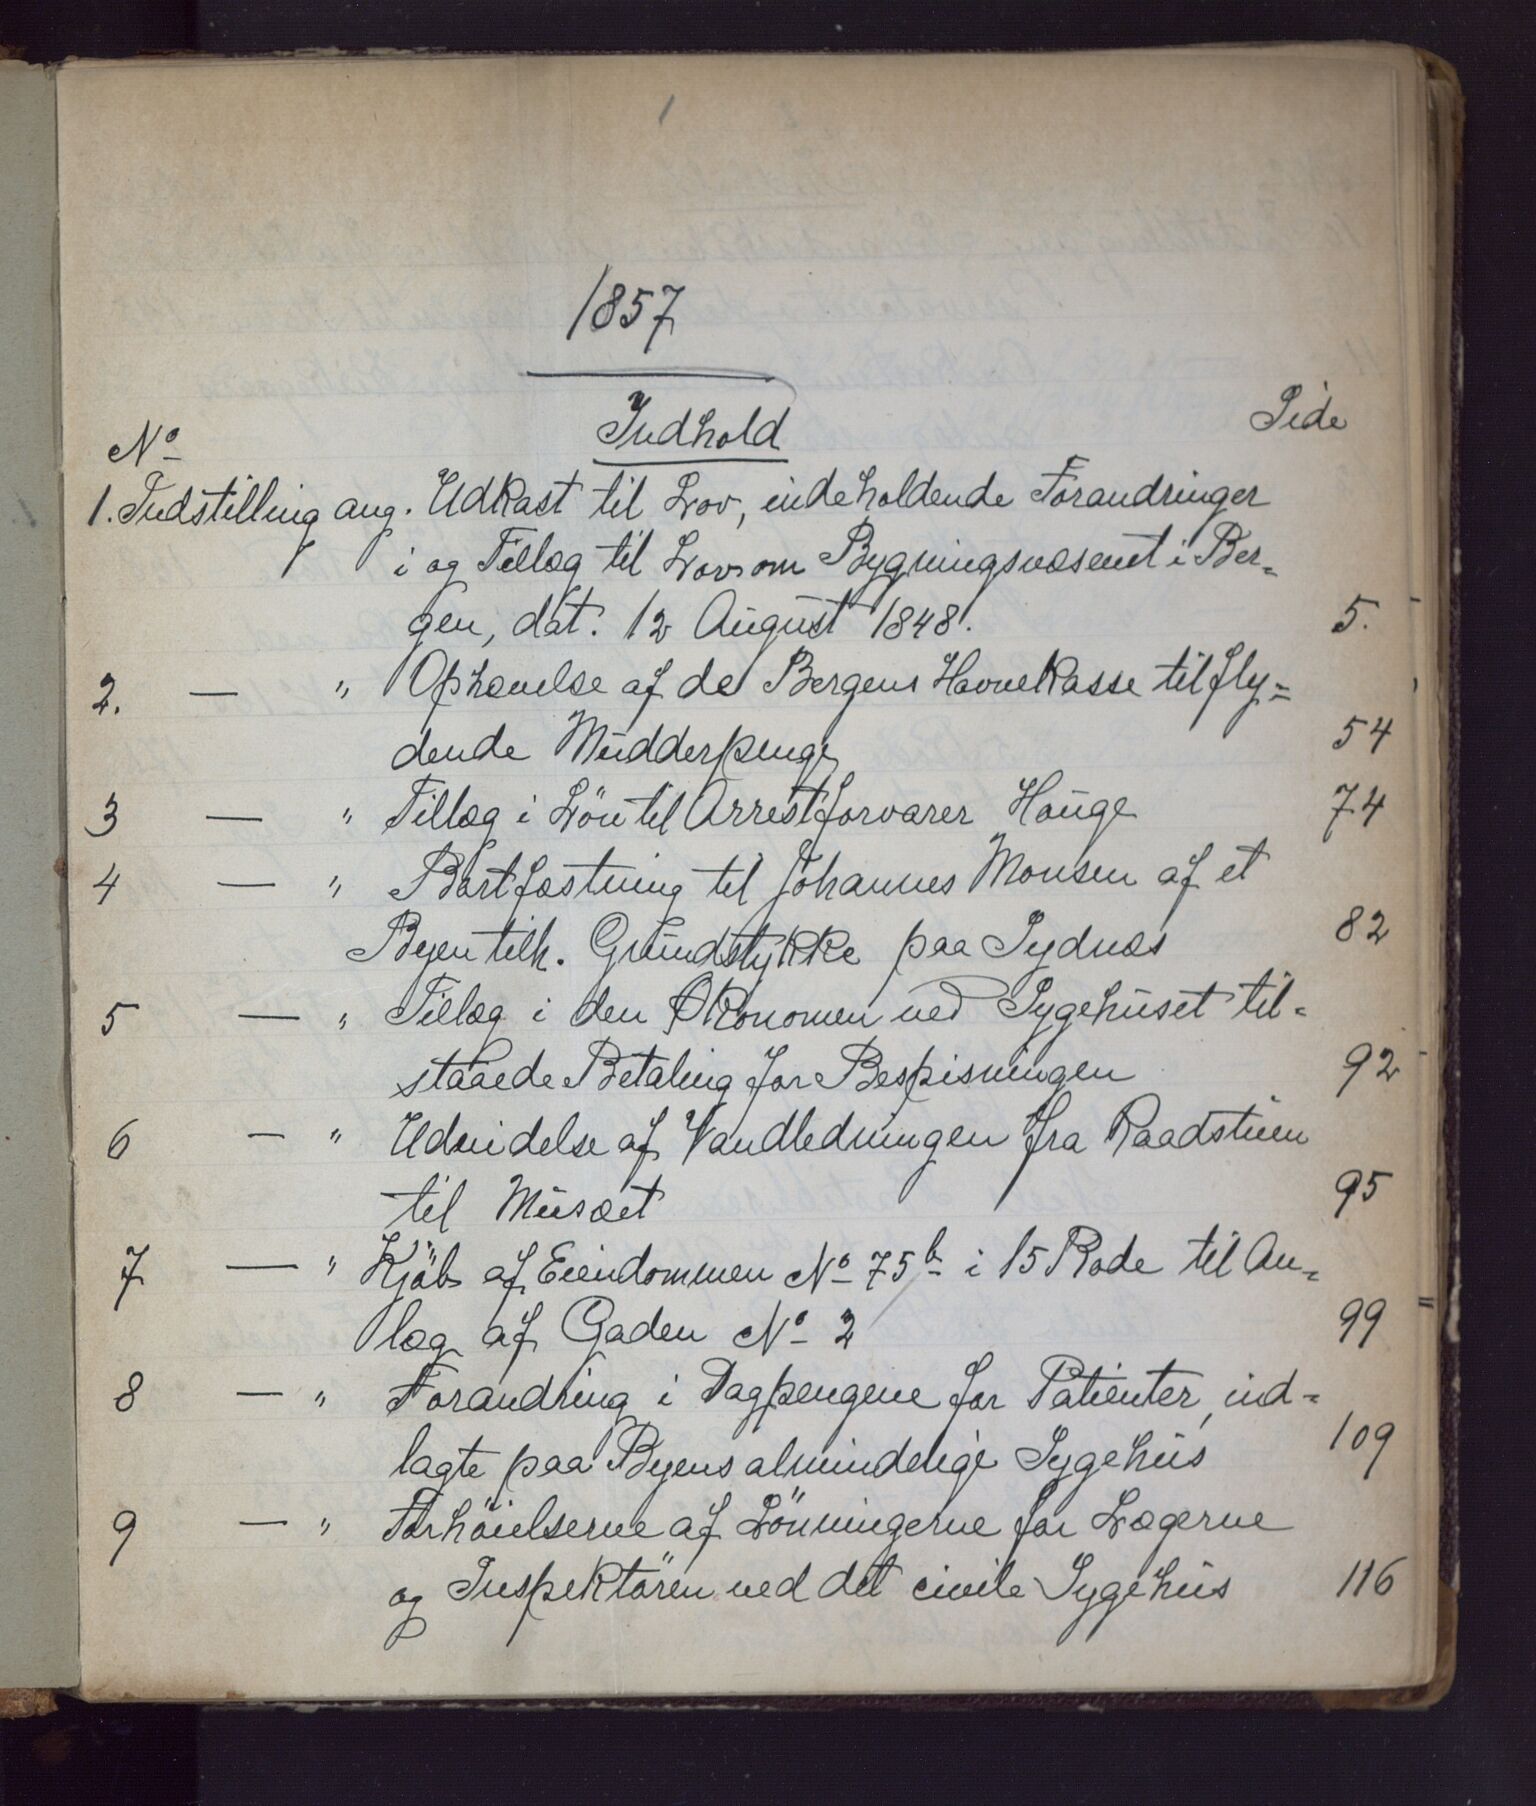 1857
Indhold
Side
No
1. Indstilling ang. Udkast til Lov, indeholdende Forandringer
i og Tillæg til Lov om Bygningsvæsenet i Ber-
gen, dat. 12 August 1848. 5.
2. — " Ophævelse af de Bergens Havnekasse tilfly=
dende Mudderpenge 54
3 — " Tillæg i Lön til Arrestforvarer Hauge 74
4 — " Bortfæstning til Johannes Monsen af et
Byen tilh. Grundstykke paa Sydnæs 82
5 — " Tillæg i den Økonomen ved Sygehuset til=
staaede Betaling for Bespisningen 92
6 — " Udvidelse af Vandledningen fra Raadstuen
til Musæet 95
7 — " Kjöb af Eiendommen No 75b i 15 Rode til An=
læg af Gaden No 2 99
8 — " Forandring i Dagpengene for Patienter, ind=
lagte paa Byens almindelige Sygehus 109
9 — " Forhöielserne af Lönningerne for Lægerne
og Inspektören ved det civile Sygehus 116